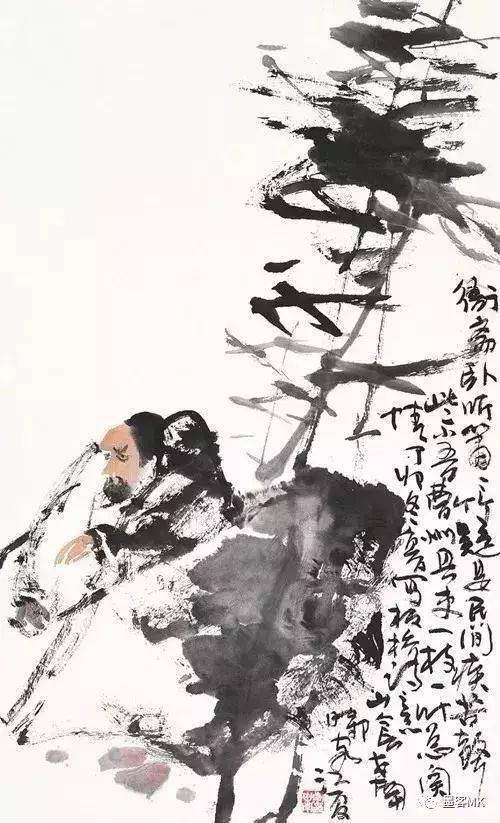 衙斋卧听萧萧竹疑是民间疾苦声
些小吾曹州县吏一枝一叶总关
情丁卯冬写板桥诗意
江夏
墨客MK